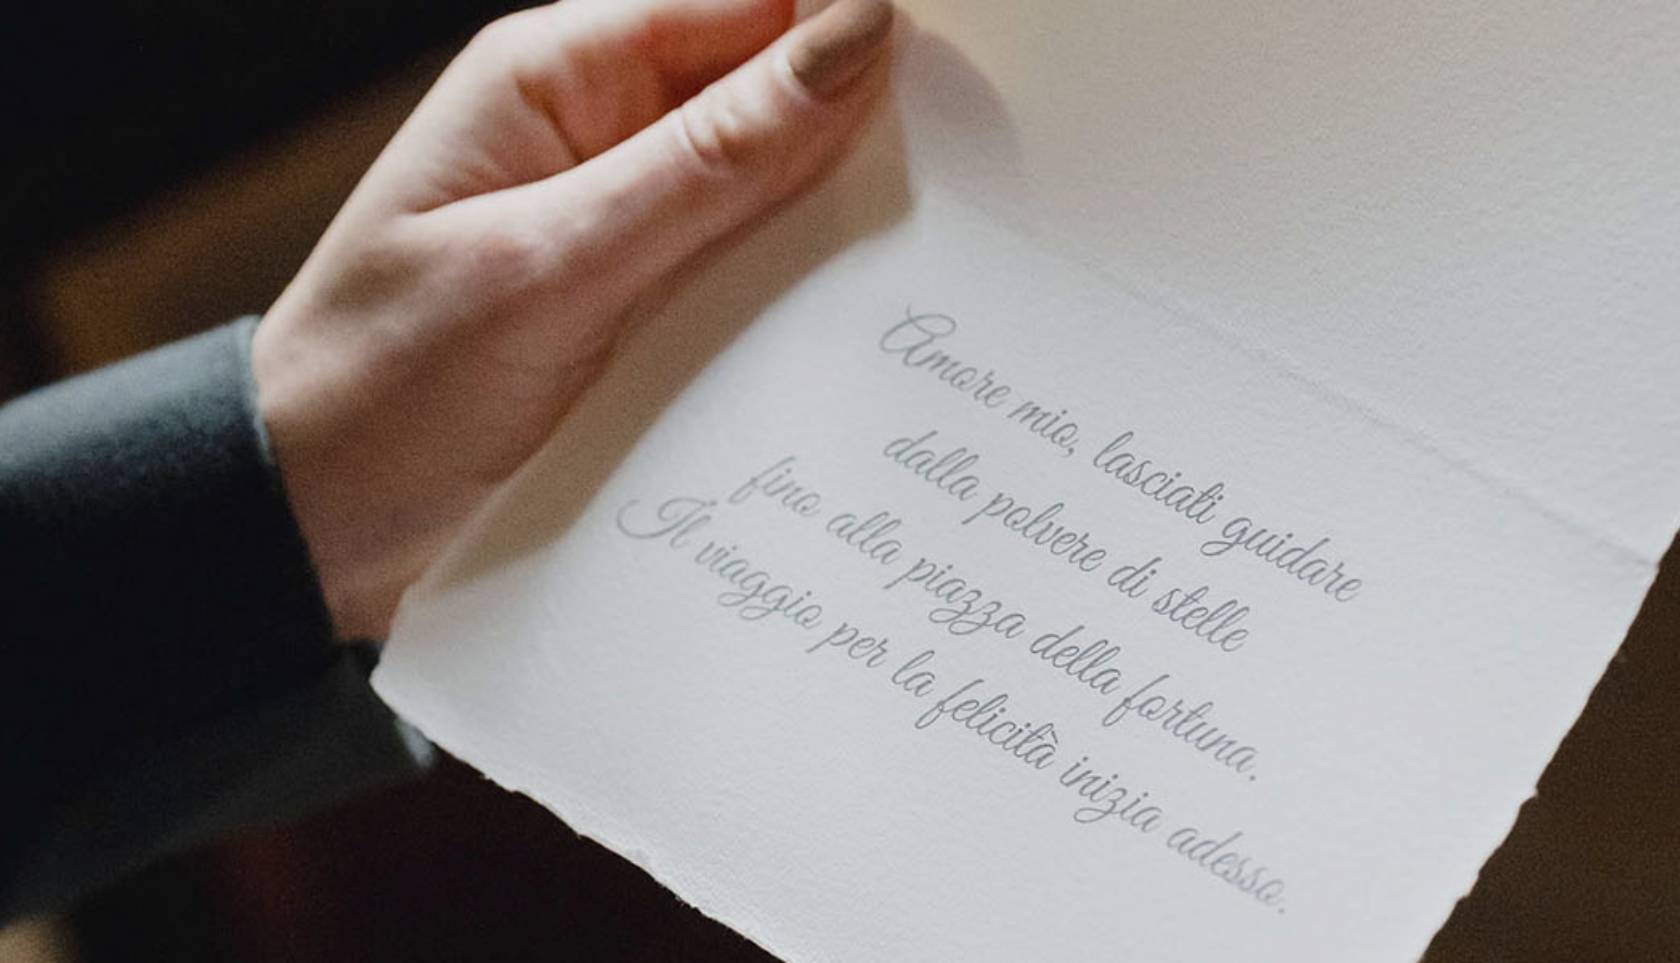 Amore mio, lasciati guidare
dalla polvere di stelle
fino alla piazza della fortuna.
Il viaggio per la felicità inizia adesso.